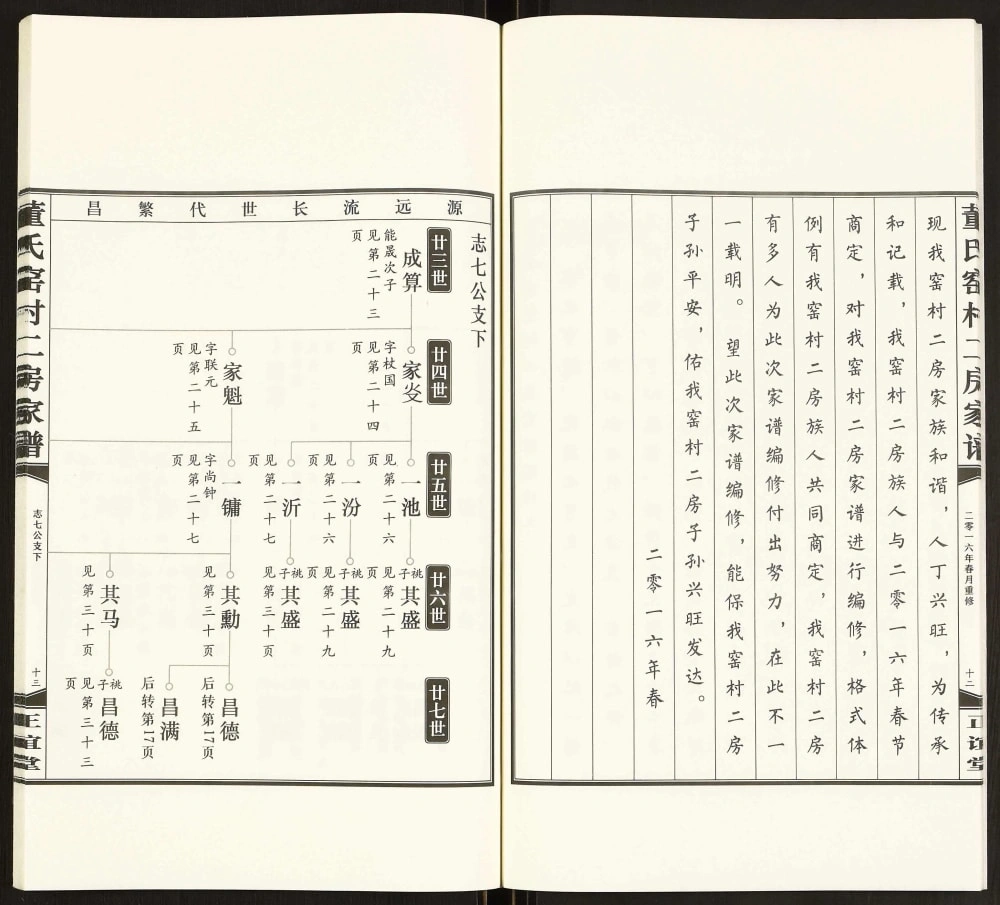 董氏窑村二房家谱
二零一六年春月重修
十二
正谊堂
现我窑村二房家族和谐，人丁兴旺，为传承
和记载，我窑村二房族人与二零一六年春节
商定，对我窑村二房家谱进行编修，格式体
例有我窑村二房族人共同商定，我窑村二房
有多人为此次家谱编修付出努力，在此不一
一载明。望此次家谱编修，能保我窑村二房
子孙平安，佑我窑村二房子孙兴旺发达。
二零一六年春
源远流长世代繁昌
志七公支下
廿三世
成算
能晟次子
见第二十三
页
廿四世
家焱
字杖国
见第二十四
页
家魁
字联元
见第二十五
页
廿五世
一池
见第二十六
页
一汾
见第二十六
页
一沂
见第二十七
页
一镛
字尚钟
见第二十七
页
廿六世
祧子
其盛
见第二十九
页
祧子
其盛
见第二十九
页
祧子
其盛
见第三十页
其勳
见第三十页
其马
见第三十页
廿七世
昌德
后转第17页
昌满
后转第17页
祧子
昌德
见第三十三
页
董氏窑村二房家谱
志七公支下
十三
正谊堂